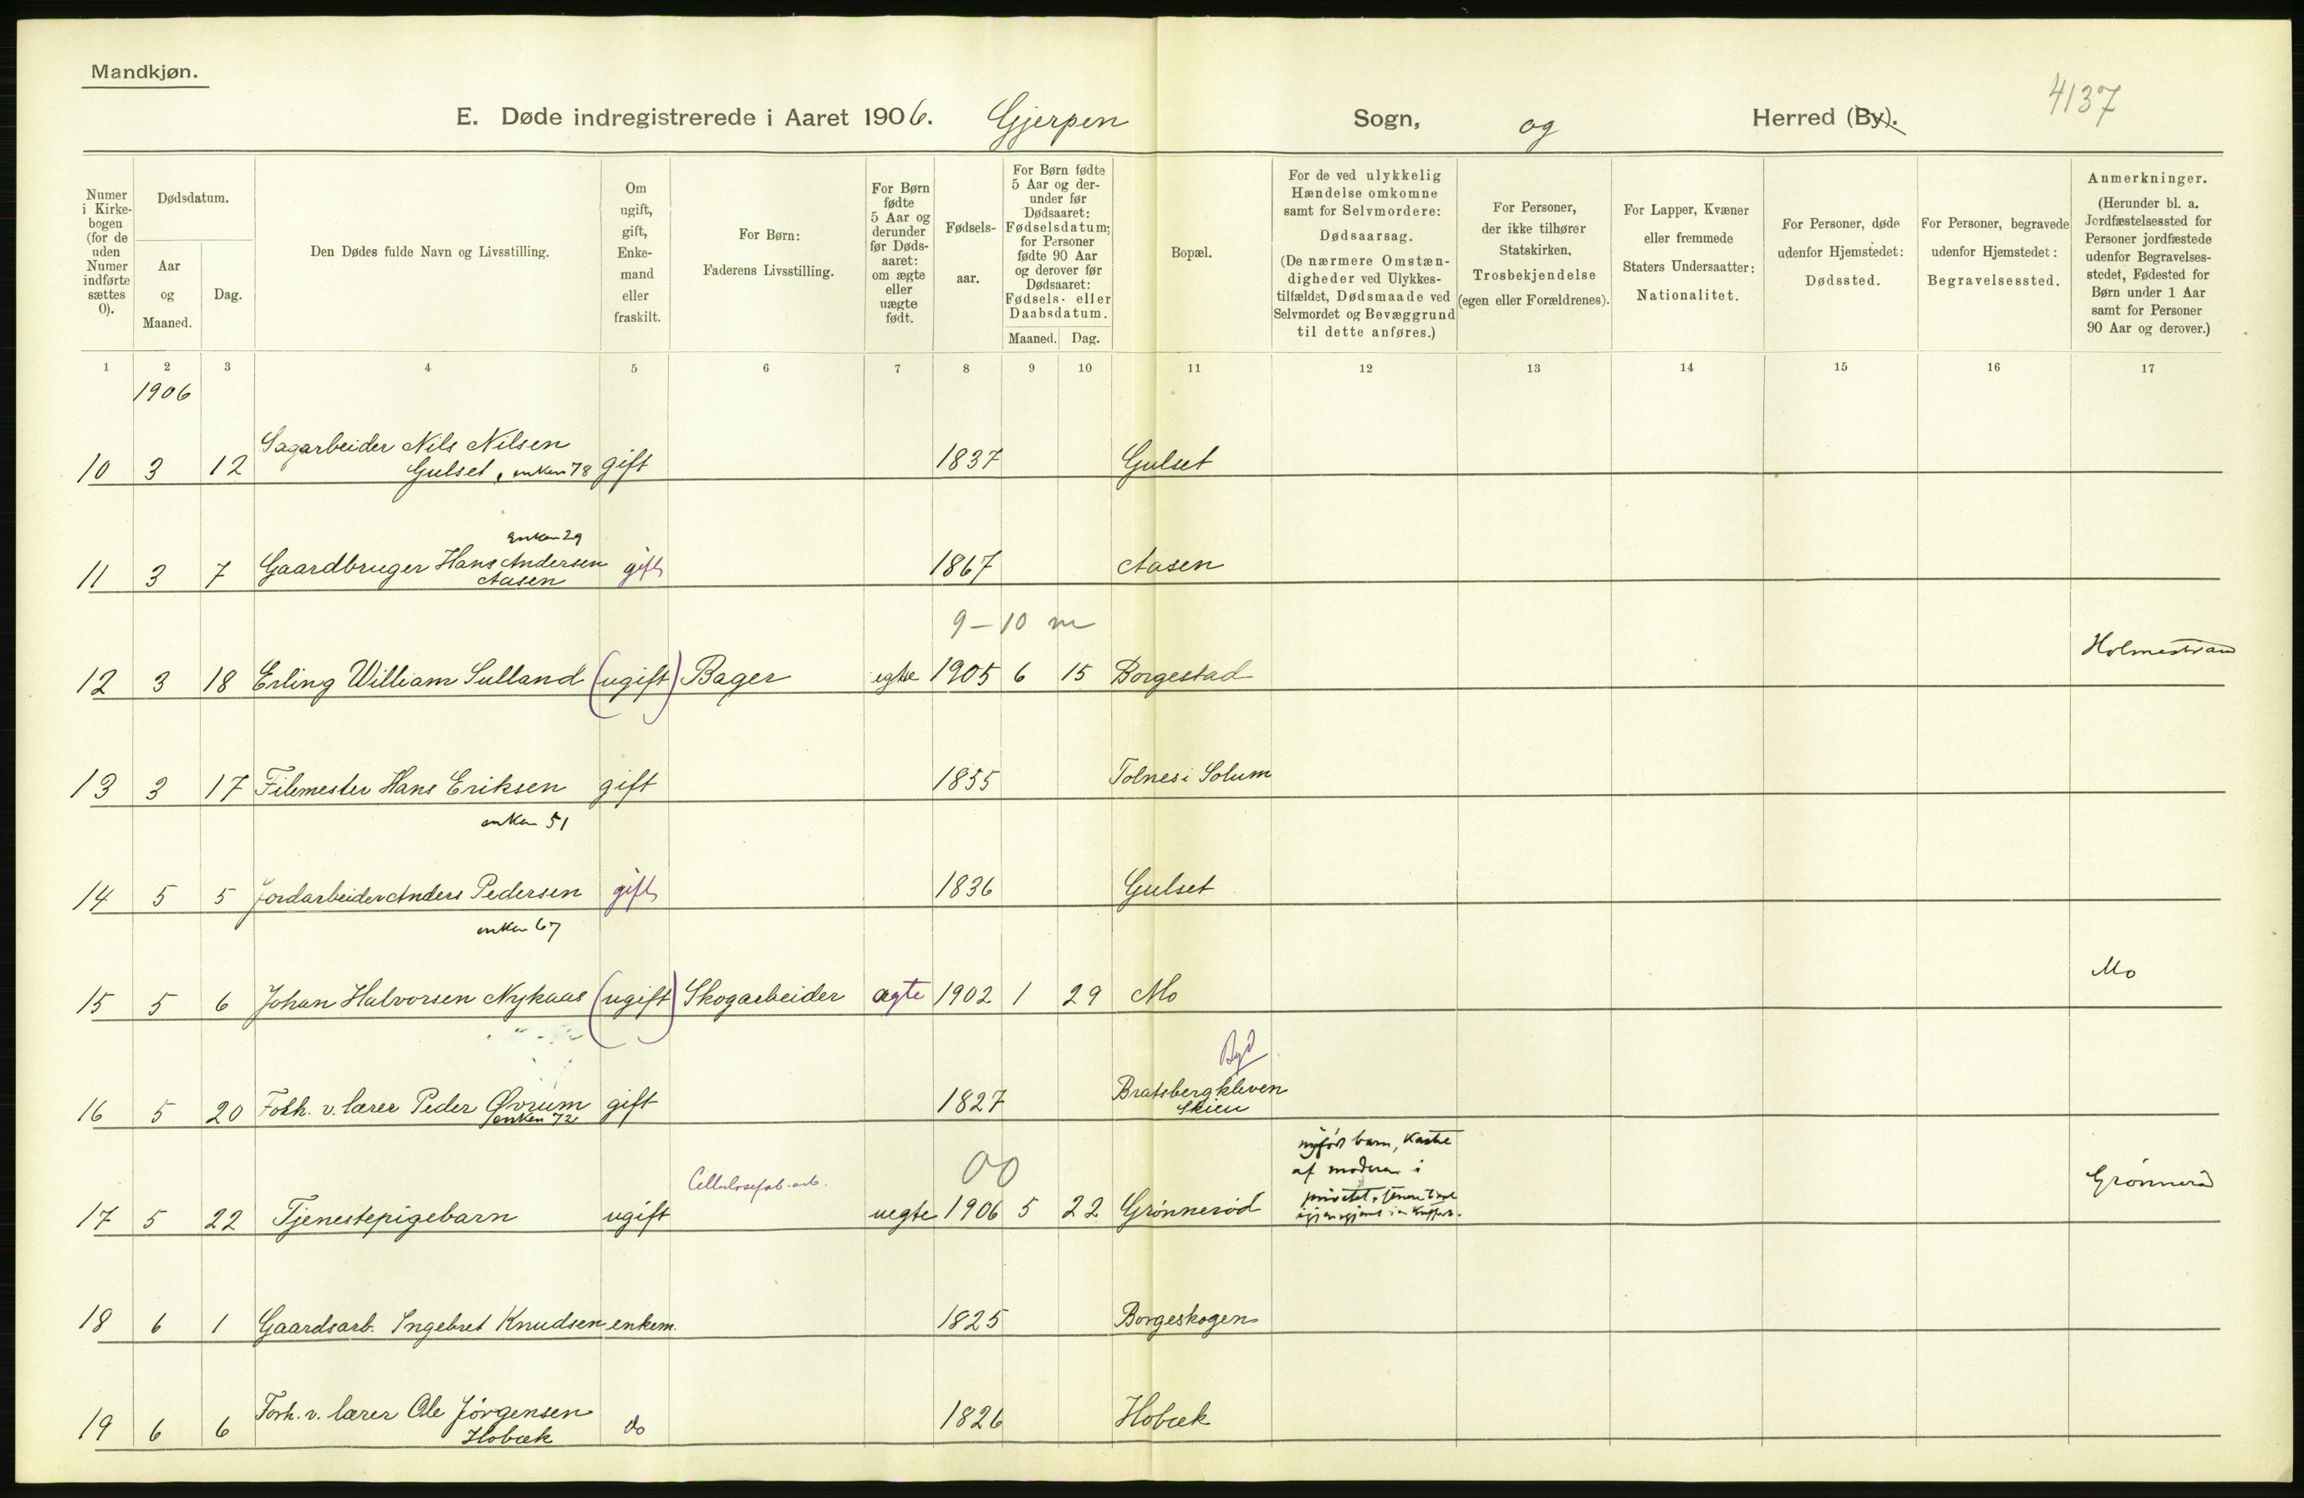 Mandkjøn.
4137
E. Døde indregistrerede i Aaret 1906. Gjerpen Sogn, og Herred (By).
Numer
i Kirke-
bogen
(for de
uden
Numer
indførte
sættes
0).
Dødsdatum.
Aar
og
Maaned.
Dag.
Den Dødes fulde Navn og Livsstilling.
Om
ugift,
gift,
Enke-
mand
eller
fraskilt.
For Børn:
Faderens Livsstilling.
For Børn
fødte
5 Aar og
derunder
før Døds-
aaret:
om ægte
eller
uægte
født.
Fødsels-
aar.
For Børn fødte
5 Aar og der-
under før
Dødsaaret:
Fødselsdatum;
for Personer
fødte 90 Aar
og derover før
Dødsaaret:
Fødsels- eller
Daabsdatum.
Maaned. Dag.
Bopæl.
For de ved ulykkelig
Hændelse omkomne
samt for Selvmordere:
Dødsaarsag.
(De nærmere Omstæn-
digheder ved Ulykkes-
tilfældet, Dødsmaade ved
Selvmordet og Bevæggrund
til dette anføres.)
For Personer,
der ikke tilhører
Statskirken,
Trosbekjendelse
(egen eller Forældrenes).
For Lapper, Kvæner
eller fremmede
Staters Undersaatter:
Nationalitet.
For Personer, døde
udenfor Hjemstedet:
Dødssted.
For Personer, begravede
udenfor Hjemstedet:
Begravelsessted.
Anmerkninger.
(Herunder bl. a.
Jordfæstelsessted for
Personer jordfæstede
udenfor Begravelses-
stedet, Fødested for
Børn under 1 Aar
samt for Personer
90 Aar og derover.)
1 2 3 4 5 6 7 8 9 10 11 12 13 14 15 16 17
1906
Sagarbeider Nils Nilsen
10 3 12 Gulset, enken 78 gift 1837 Gulset
enken 29
11 3 7 Gaardbruger Hans Andersen gift 1867 Aasen
Aasen
9-10 m
Holmestrand
12 3 18 Erling William Sulland (ugift) Bager egte 1905 6 15 Borgestad
13 3 17 Filemester Hans Eriksen gift 1855 Tolnes i Solum
enken 51
14 5 5 Jordarbeider Anders Pedersen gift 1836 Gulset
enken 67
Mo
15 5 6 Johan Halvorsen Nykaas (ugift) Skogarbeider ægte 1902 1 29 Mo
By?
16 5 20 Forh. v. lærer Peder Øvrum gift 1827 Bratsbergkleven
enken 72 Skien
Cellulosefab. arb. 00 nyfødt barn, kastet
af moderen i
Grønnerød
17 5 22 Tjenestepigebarn ugift uegte 1906 5 22 Grønnerød privetet,
18 6 1 Gaardsarb. Ingebret Knudsen enkem. 1825 Borgeskogen
19 6 6 Forh. v. lærer Ole Jörgensen do 1826 Hobæk
Hobæk